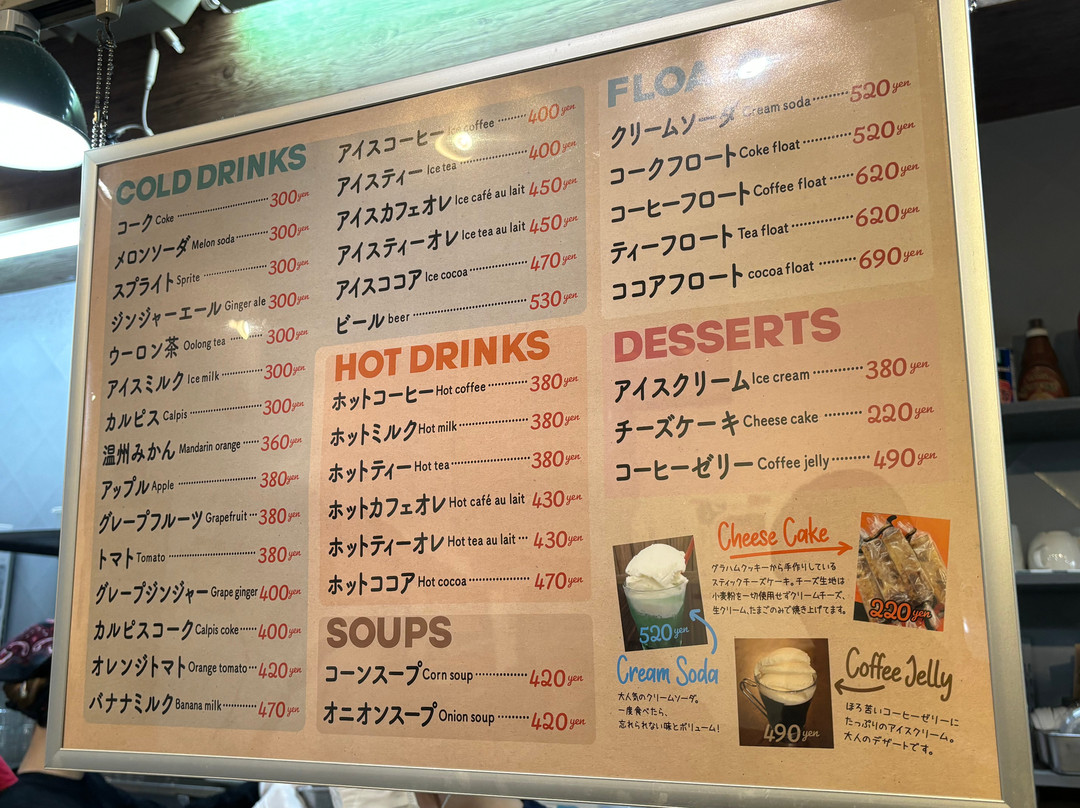 COLD DRINKS
コーク Coke 300yen
メロンソーダ Melon soda 300yen
スプライト Sprite 300yen
ジンジャーエール Ginger ale 300yen
ウーロン茶 Oolong tea 300yen
アイスミルク Ice milk 300yen
カルピス Calpis 300yen
温州みかん Mandarin orange 360yen
アップル Apple 380yen
グレープフルーツ Grapefruit 380yen
トマト Tomato 380yen
グレープジンジャー Grape ginger 400yen
カルピスコーク Calpis coke 400yen
オレンジトマト Orange tomato 420yen
バナナミルク Banana milk 470yen
アイスコーヒー Ice coffee 400yen
アイスティー Ice tea 400yen
アイスカフェオレ Ice café au lait 450yen
アイスティーオレ Ice tea au lait 450yen
アイスココア Ice cocoa 470yen
ビール beer 530yen
HOT DRINKS
ホットコーヒー Hot coffee 380yen
ホットミルク Hot milk 380yen
ホットティー Hot tea 380yen
ホットカフェオレ Hot café au lait 430yen
ホットティーオレ Hot tea au lait 430yen
ホットココア Hot cocoa 470yen
SOUPS
コーンスープ Corn soup 420yen
オニオンスープ Onion soup 420yen
FLOATS
クリームソーダ Cream soda 520yen
コークフロート Coke float 520yen
コーヒーフロート Coffee float 620yen
ティーフロート Tea float 620yen
ココアフロート cocoa float 690yen
DESSERTS
アイスクリーム Ice cream 380yen
チーズケーキ Cheese cake 220yen
コーヒーゼリー Coffee jelly 490yen
Cheese Cake
グラハムクッキーから手作りしている
スティックチーズケーキ。チーズ生地は
小麦粉を一切使用せずクリームチーズ、
生クリーム、たまごのみで焼き上げてます。
220yen
520yen
Cream Soda
大人気のクリームソーダ。
一度食べたら、
忘れられない味とボリューム!
490yen
Coffee Jelly
ほろ苦いコーヒーゼリーに
たっぷりのアイスクリーム。
大人のデザートです。